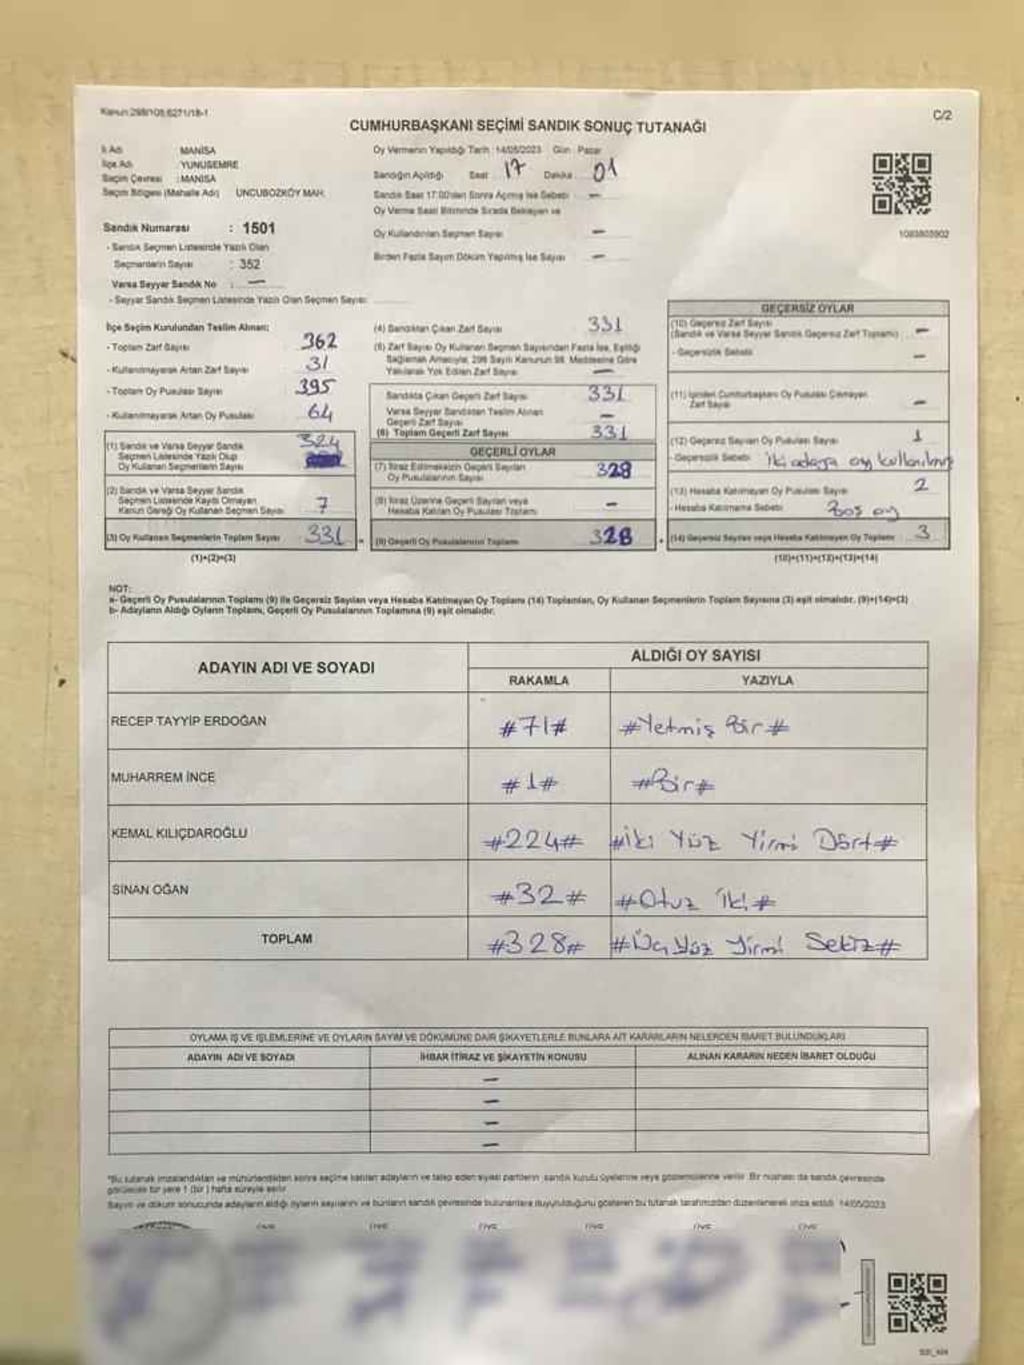 Kanun:298/105;6271/18-1
C/2
CUMHURBAŞKANI SEÇİMİ SANDIK SONUÇ TUTANAĞI
İl Adı MANİSA
İlçe Adı YUNUSEMRE
Seçim Çevresi : MANİSA
Seçim Bölgesi (Mahalle Adı) UNCUBOZKÖY MAH.
Sandık Numarası : 1501
- Sandık Seçmen Listesinde Yazılı Olan
Seçmenlerin Sayısı : 352
Varsa Seyyar Sandık No : —
- Seyyar Sandık Seçmen Listesinde Yazılı Olan Seçmen Sayısı:
Oy Vermenin Yapıldığı Tarih :14/05/2023 Gün : Pazar
Sandığın Açıldığı Saat : 17 Dakika : 01
Sandık Saat 17:00'den Sonra Açılmış İse Sebebi —
Oy Verme Saati Bitiminde Sırada Bekleyen ve
Oy Kullandırılan Seçmen Sayısı —
Birden Fazla Sayım Döküm Yapılmış İse Sayısı —
1083803902
İlçe Seçim Kurulundan Teslim Alınan:
- Toplam Zarf Sayısı 362
- Kullanılmayarak Artan Zarf Sayısı 31
- Toplam Oy Pusulası Sayısı 395
- Kullanılmayarak Artan Oy Pusulası 64
(1) Sandık ve Varsa Seyyar Sandık 324
Seçmen Listesinde Yazılı Olup
Oy Kullanan Seçmenlerin Sayısı
(2) Sandık ve Varsa Seyyar Sandık
Seçmen Listesinde Kayıtlı Olmayan
Kanun Gereği Oy Kullanan Seçmen Sayısı 7
(3) Oy Kullanan Seçmenlerin Toplam Sayısı 331
(1)+(2)=(3)
(4) Sandıktan Çıkan Zarf Sayısı 331
(5) Zarf Sayısı Oy Kullanan Seçmen Sayısından Fazla İse, Eşitliği
Sağlamak Amacıyla, 298 Sayılı Kanunun 98. Maddesine Göre
Yakılarak Yok Edilen Zarf Sayısı —
Sandıkta Çıkan Geçerli Zarf Sayısı 331
Varsa Seyyar Sandıktan Teslim Alınan
Geçerli Zarf Sayısı —
(6) Toplam Geçerli Zarf Sayısı 331
GEÇERLİ OYLAR
(7) İtiraz Edilmeksizin Geçerli Sayılan
Oy Pusulalarının Sayısı 328
(8) İtiraz Üzerine Geçerli Sayılan veya
Hesaba Katılan Oy Pusulası Toplamı —
(9) Geçerli Oy Pusulalarının Toplamı 328
GEÇERSİZ OYLAR
(10) Geçersiz Zarf Sayısı
(Sandık ve Varsa Seyyar Sandık Geçersiz Zarf Toplamı) —
- Geçersizlik Sebebi —
(11) İçinden Cumhurbaşkanı Oy Pusulası Çıkmayan
Zarf Sayısı —
(12) Geçersiz Sayılan Oy Pusulası Sayısı 1
- Geçersizlik Sebebi iki adaya oy kullanılmış
(13) Hesaba Katılmayan Oy Pusulası Sayısı 2
- Hesaba Katılmama Sebebi Boş oy
(14) Geçersiz Sayılan veya Hesaba Katılmayan Oy Toplamı 3
(10)+(11)+(12)+(13)=(14)
NOT:
a- Geçerli Oy Pusulalarının Toplamı (9) ile Geçersiz Sayılan veya Hesaba Katılmayan Oy Toplamı (14) Toplamları, Oy Kullanan Seçmenlerin Toplam Sayısına (3) eşit olmalıdır. (9)+(14)=(3)
b- Adayların Aldığı Oyların Toplamı, Geçerli Oy Pusulalarının Toplamına (9) eşit olmalıdır.
ADAYIN ADI VE SOYADI
ALDIĞI OY SAYISI
RAKAMLA YAZIYLA
RECEP TAYYİP ERDOĞAN #71# #Yetmiş Bir#
MUHARREM İNCE #1# #Bir#
KEMAL KILIÇDAROĞLU #224# #İki Yüz Yirmi Dört#
SİNAN OĞAN #32# #Otuz İki#
TOPLAM #328# #Üç Yüz Yirmi Sekiz#
OYLAMA İŞ VE İŞLEMLERİNE VE OYLARIN SAYIM VE DÖKÜMÜNE DAİR ŞİKAYETLERLE BUNLARA AİT KARARLARIN NELERDEN İBARET BULUNDUKLARI
ADAYIN ADI VE SOYADI İHBAR İTİRAZ VE ŞİKAYETİN KONUSU ALINAN KARARIN NEDEN İBARET OLDUĞU
—
—
—
—
*Bu tutanak imzalandıktan ve mühürlendikten sonra seçime katılan adayların ve talep eden siyasi partilerin sandık kurulu üyelerine veya gözlemcilerine verilir. Bir nüshası da sandık çevresinde
görülecek bir yere 1 (bir) hafta süreyle asılır.
Sayım ve döküm sonucunda adayların aldığı oyların sayılarını ve bunların sandık çevresinde bulunanlara duyurulduğunu gösteren bu tutanak tarafımızdan düzenlenerek imza edildi. 14/05/2023
ÜYE ÜYE ÜYE ÜYE ÜYE ÜYE